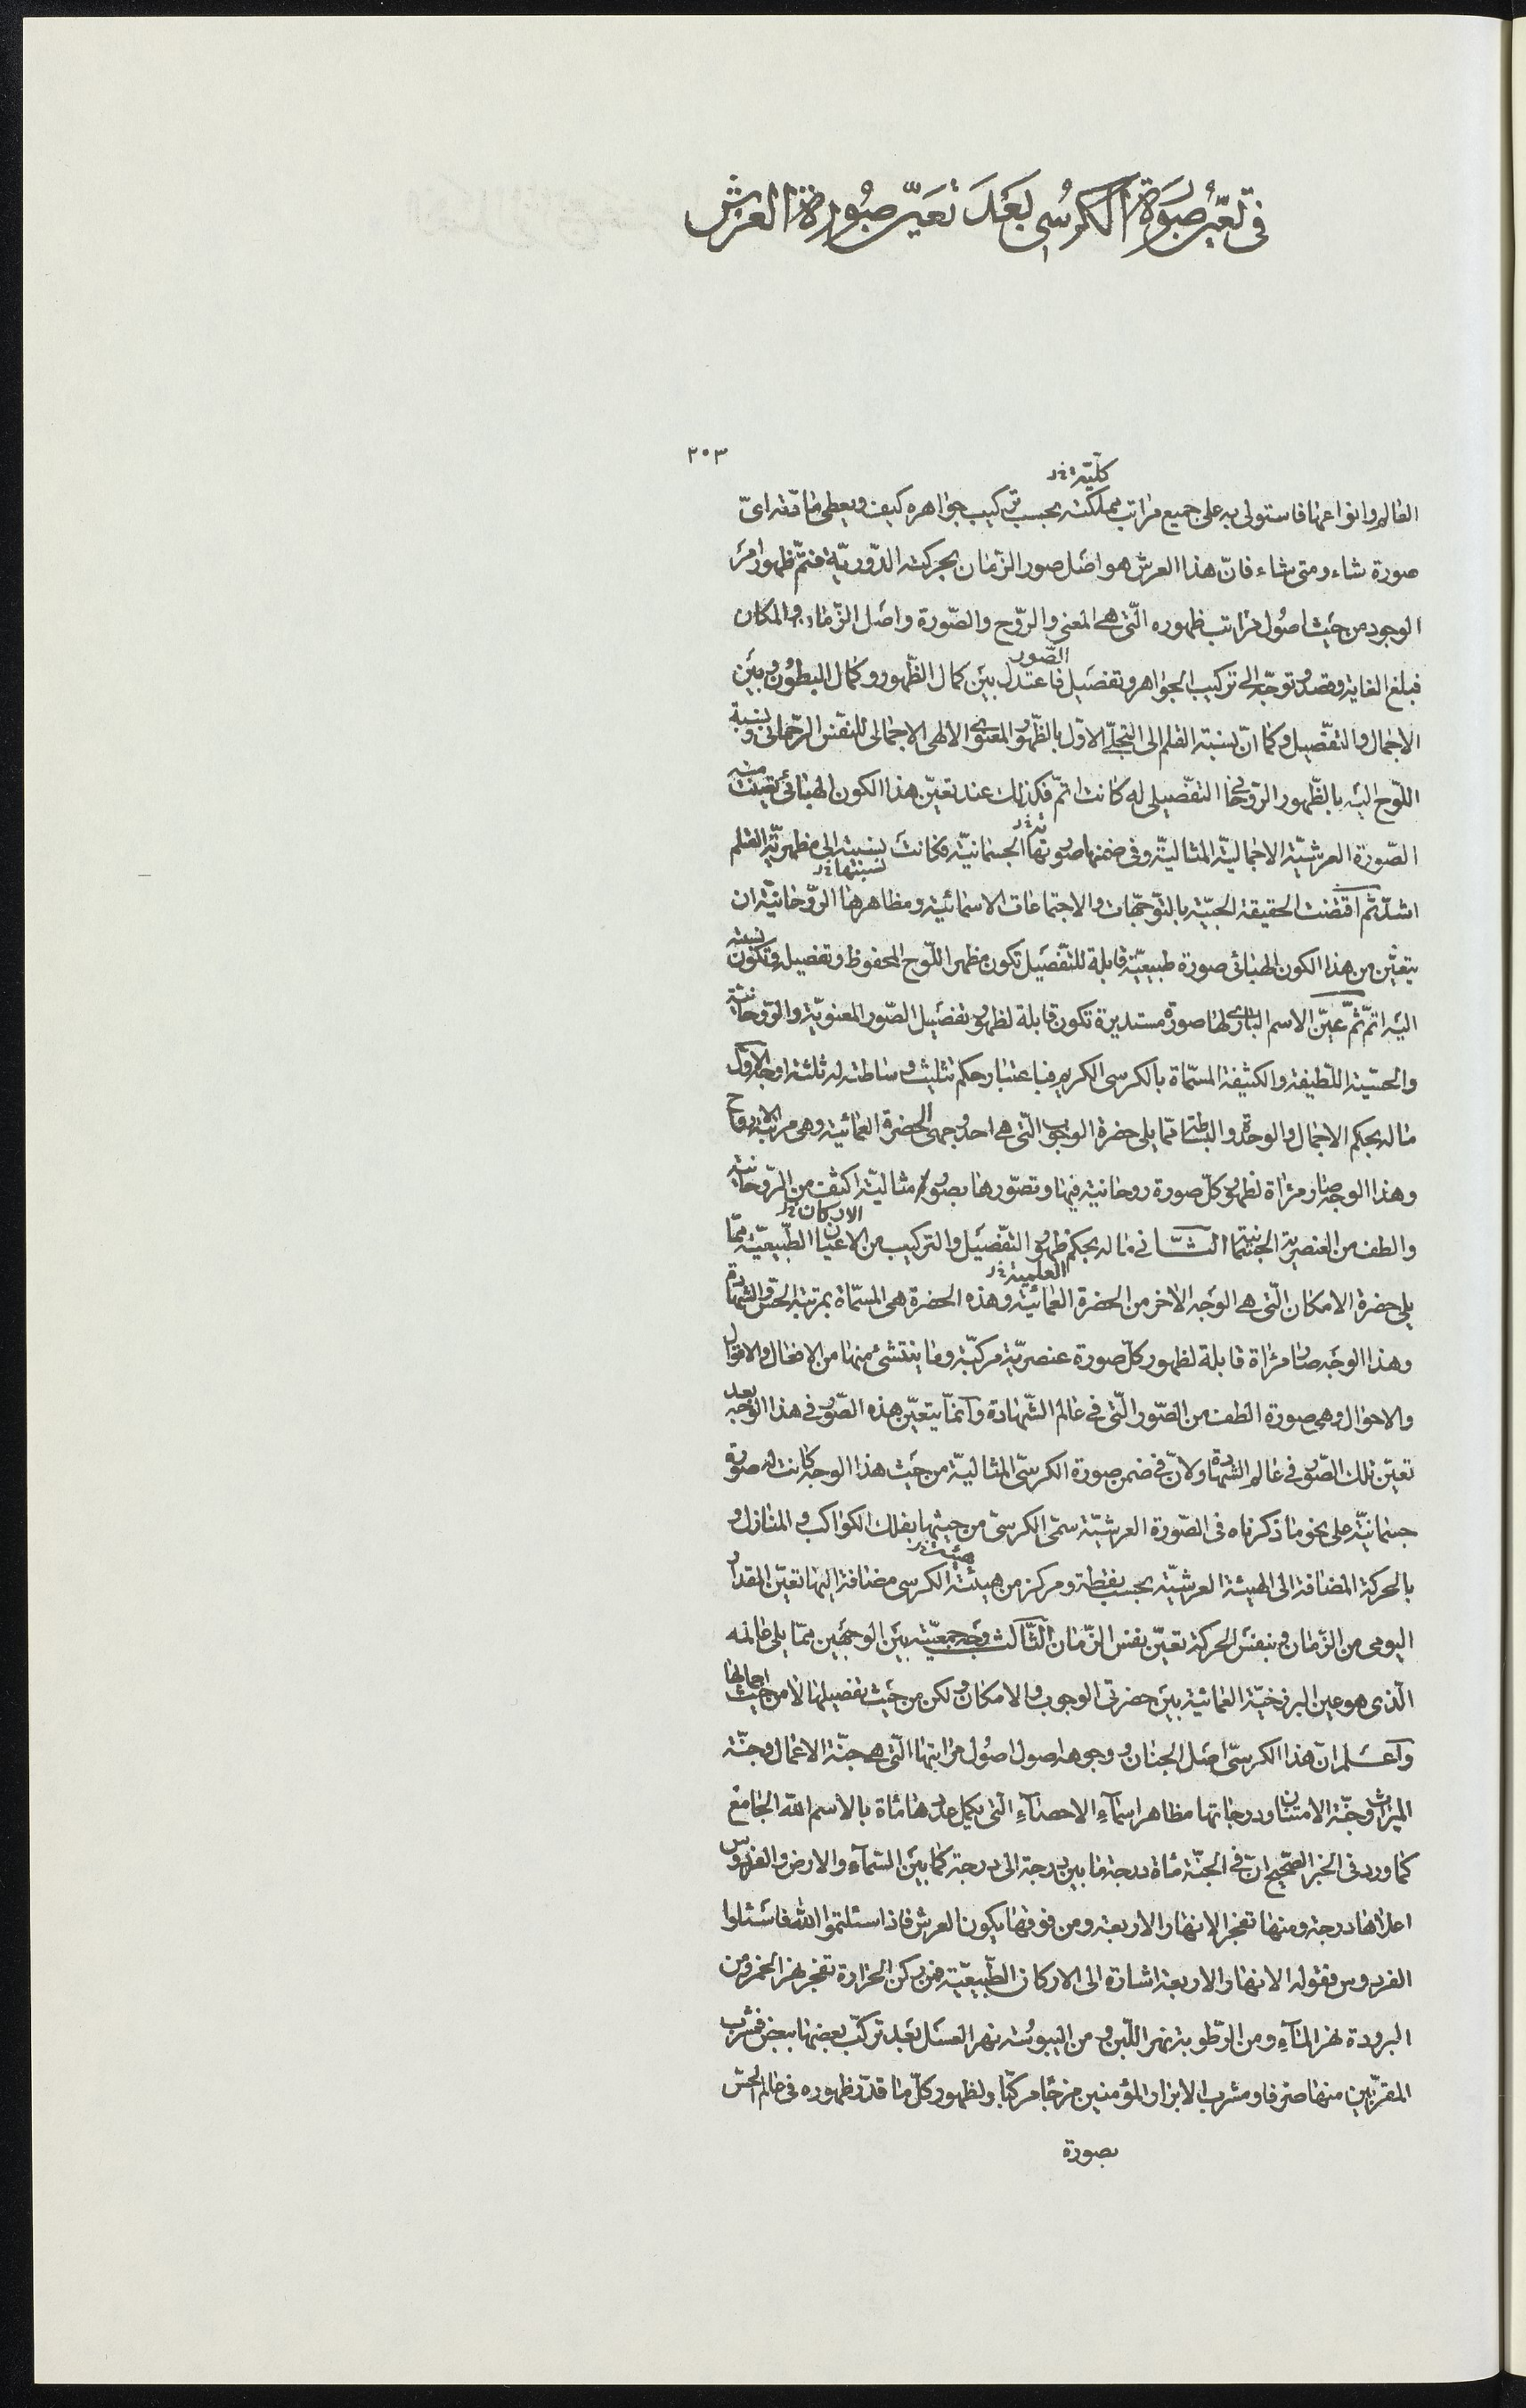 في تعيّن صورة الكرسي بعد تعيّن صورة العرش
٢٠٣
كلّيّة خ‌ر
العالم وانواعها فاستولى به على جميع مراتب مملكته بحسب تركيب جواهره كيف ويعطى مادّته اىّ
صورة شاء ومتى شاء فانّ هذا العرش هو اصل صور الزّمان بحركته الدّوريّة فتمّ ظهور امر
الوجود من حيث اصول مراتب ظهوره الّتى هى المعنى والرّوح والصّورة واصل الزّمان والمكان
فبلغ الغاية وقصد وتوجّه الى تركيب الجواهر وتفصيل الصّور فاعتدل بين كمال الظّهور وكمال البطون وبين
الاجمال والتفصيل وكما انّ نسبة القلم الى التجلّى الاوّل بالظّهور المعنوى الالهى الاجمالى للنفس الرّحمانى ونسبة
اللّوح اليه بالظّهور الرّوحانى التفصيلى له كانت اتمّ فكذلك عند تعيّن هذا الكون الهبائى تعيّنت منه
الصّورة العرشيّة الاجماليّة المثاليّة وفى ضمنها صورتها الجسمانيّة فكانت نسبته الى مظهريّة القلم
نسبتها خ‌ر
اشدّ ثمّ اقتضت الحقيقة الحبيّة بالتّوجّهات والاجتماعات الاسمائيّة ومظاهرها الرّوحانيّة ان
يتعيّن من هذا الكون الهبائى صورة طبيعيّة قابلة للتّفصيل تكون مظهر اللّوح المحفوظ وتفصيله وتكون نسبته
اليه اتمّ ثمّ عيّن الاسم البارى لها صورة مستديرة تكون قابلة لظهور تفصيل الصّور المعنويّة والرّوحانيّة
والحسّيّة اللّطيفة والكثيفة المسمّاة بالكرسى الكريم فباعتبار حكم تثليث وساطته له ثلثة اوجه الاوّل
ما له بحكم الاجمال والوحدة والبساطة ممّا يلى حضرة الوجوب الّتى هى احد وجهى الحضرة العمائيّة وهى مرتبة الارواح
وهذا الوجه صار مرآة لظهور كلّ صورة روحانية فيها وتصوّرها بصور مثاليّة اكثف من الرّوحانيّة
والطف من العنصرية الجسمانيّة الثّانى ما له بحكم ظهور التّفصيل والتركيب من الاعيان الطّبيعيّة ممّا
الاركان خ‌ر
يلى حضرة الامكان الّتى هى الوجه الاخر من الحضرة العمائيّة وهذه الحضرة هى المسمّاة بمرتبة الحسّ والشّهادة
العلمية خ‌ر
وهذا الوجه صار مرآة قابلة لظهور كلّ صورة عنصريّة مركّبة وما ينتشئ منها من الافعال والاقوال
والاحوال وهى صورة الطف من الصّور الّتى فى عالم الشّهادة وانّما يتعيّن هذه الصّور فى هذا الوجه بعد
تعيّن تلك الصّور فى عالم الشهادة ولانّ فى ضمن صورة الكرسىّ المثاليّة من حيث هذا الوجه كانت له صورة
جسمانيّة على نحو ما ذكرناه فى الصّورة العرشيّة سمّى الكرسىّ من حيثها بفلك الكواكب والمنازل و
بالحركة المضافة الى الهيئة العرشيّة بحسب نقطة ومركز من هيئة الكرسى مضافة اليها تعيّن المقدار
هيئته خ‌ر
اليومى من الزّمان وبنفس الحركة تعيّن نفس الزّمان الثّالث وجه جمعيّته بين الوجهين ممّا يلى عالمه
الّذى هو عين البرزخيّة العمائيّة بين حضرتى الوجوب والامكان ولكن من حيث تفصيلها لا من حيث اجمالها
واعلم انّ هذا الكرسىّ اصل الجنان ووجوهه اصول اصول مراتبها الّتى هى جنّة الاعمال وجنّة
الميراث وجنّة الامتنان ودرجاتها مظاهر اسماء الاحصاء الّتى يكمل عددها مأة بالاسم الله الجامع
كما ورد فى الخبر الصّحيح انّ فى الجنّة مأة درجة ما بين درجة الى درجة كما بين السّماء والارض والفردوس
اعلاها درجة ومنها تفجر الانهار الاربعة ومن فوقها يكون العرش فاذا سئلتموا الله فاسئلوا
الفردوس فقوله الانهار الاربعة اشارة الى الاركان الطّبيعيّة فمن ركن الحرارة تفجر نهر الخمر ومن
البرودة نهر الماء ومن الرّطوبة نهر اللّبن ومن اليبوسة نهر العسل بعد تركّب بعضها ببعض فشرب
المقرّبين منها صرفا ومشرب الابرار المؤمنين مزجا مركّبا ولظهور كلّ ما قدّر ظهوره فى عالم الحسّ
بصورة